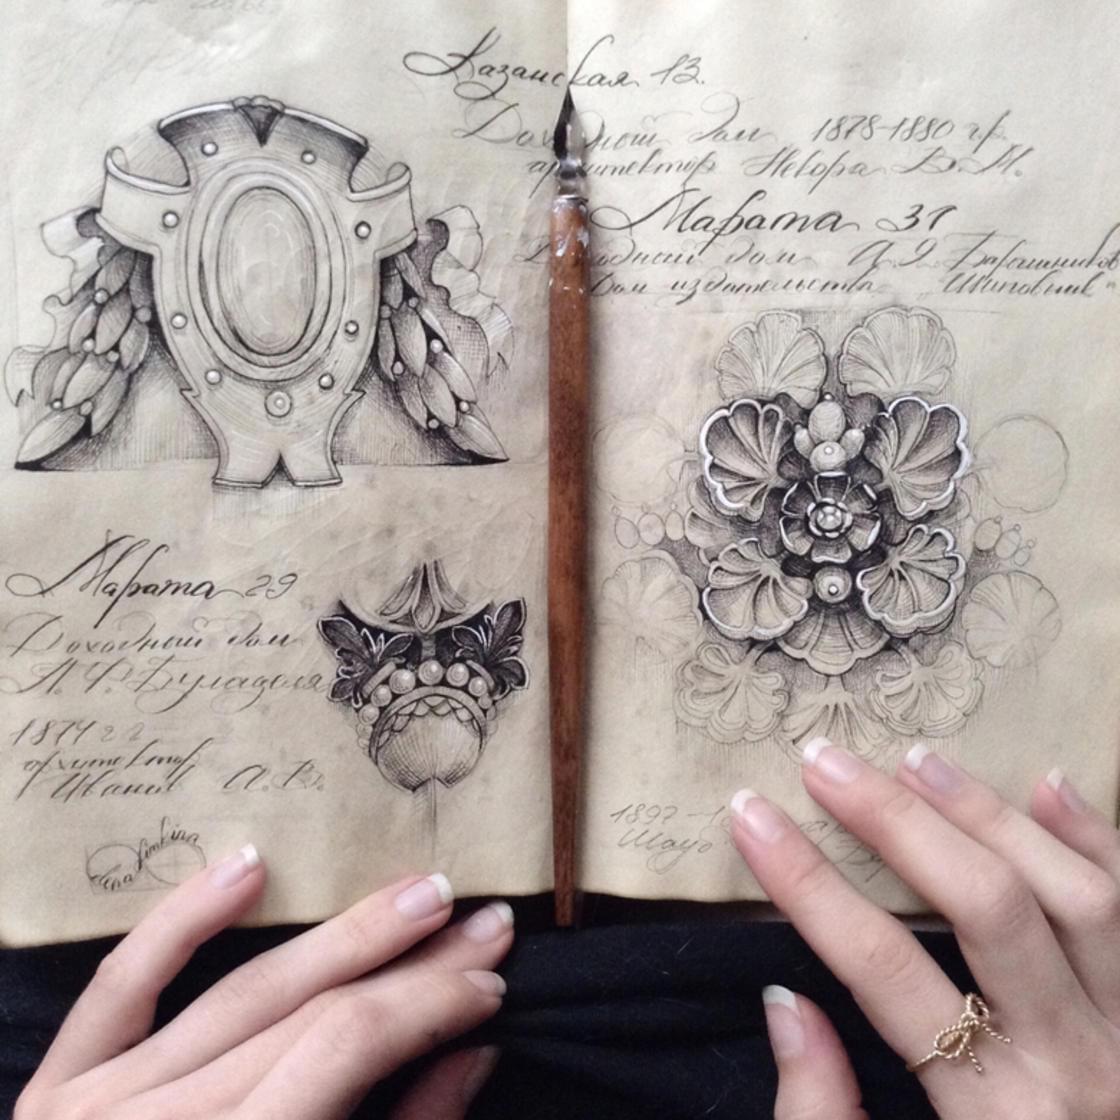 Казанская 13.
Доходный дом 1878-1880 гг.
архитектор Невора В. М.
Марата 31
Доходный дом А. Барышников
Дом издательства „Шиповник"
Марата 29
Доходный дом
А. Ф. Буладзеля
1874 г
архитектор
Иванов А. В.
Lena Limkina
1897